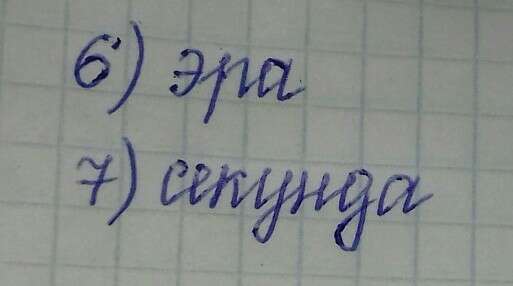 6) эра
7) секунда